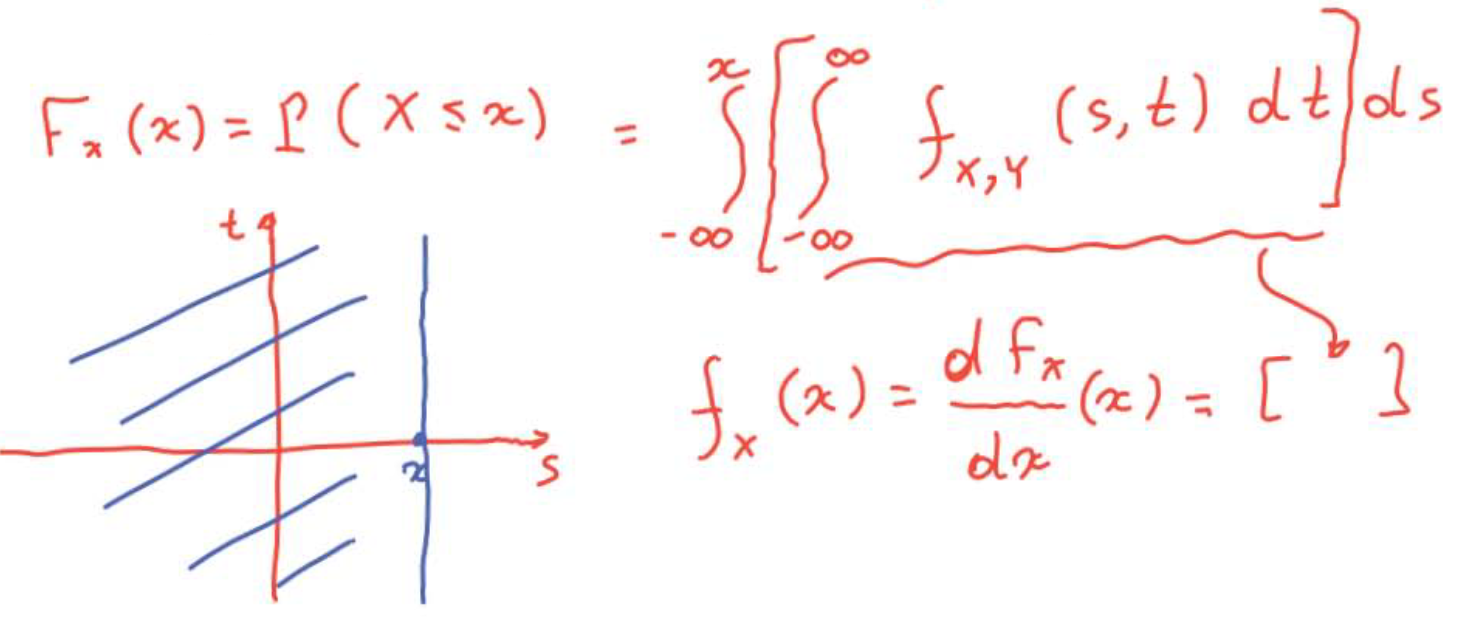 F_x (x) = P ( X ≤ x ) = ∫_{-∞}^{x} [ ∫_{-∞}^{∞} f_{X,Y} (s,t) dt ] ds
t
x
s
f_X (x) = dF_x/dx (x) = [ ]